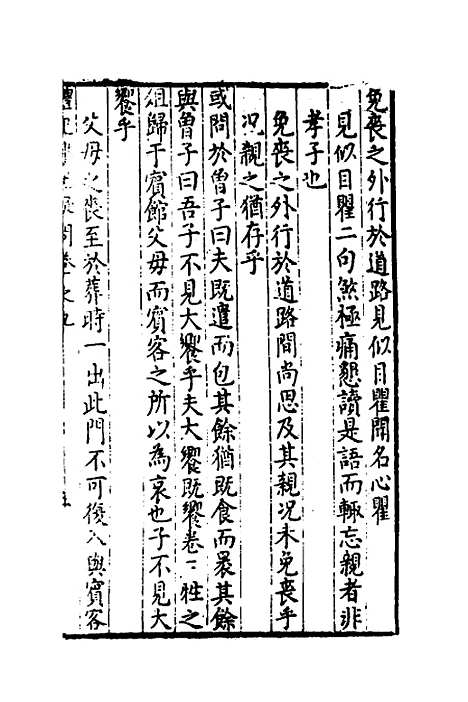 免喪之外行於道路見似目瞿聞名心瞿
見似目瞿二句煞極痛懇讀是語而輙忘親者非
孝子也
免喪之外行於道路間尚思及其親况未免喪乎
况親之猶存乎
或問於曽子曰夫既遣而包其餘猶既食而褁其餘
與曽子曰吾子不見大饗乎夫大饗既饗卷三牲之
俎歸于賔館父母而賔客之所以為哀也子不見大
饗乎
父母之喪至於葬時一出此門不可復入與賔客
卷之九